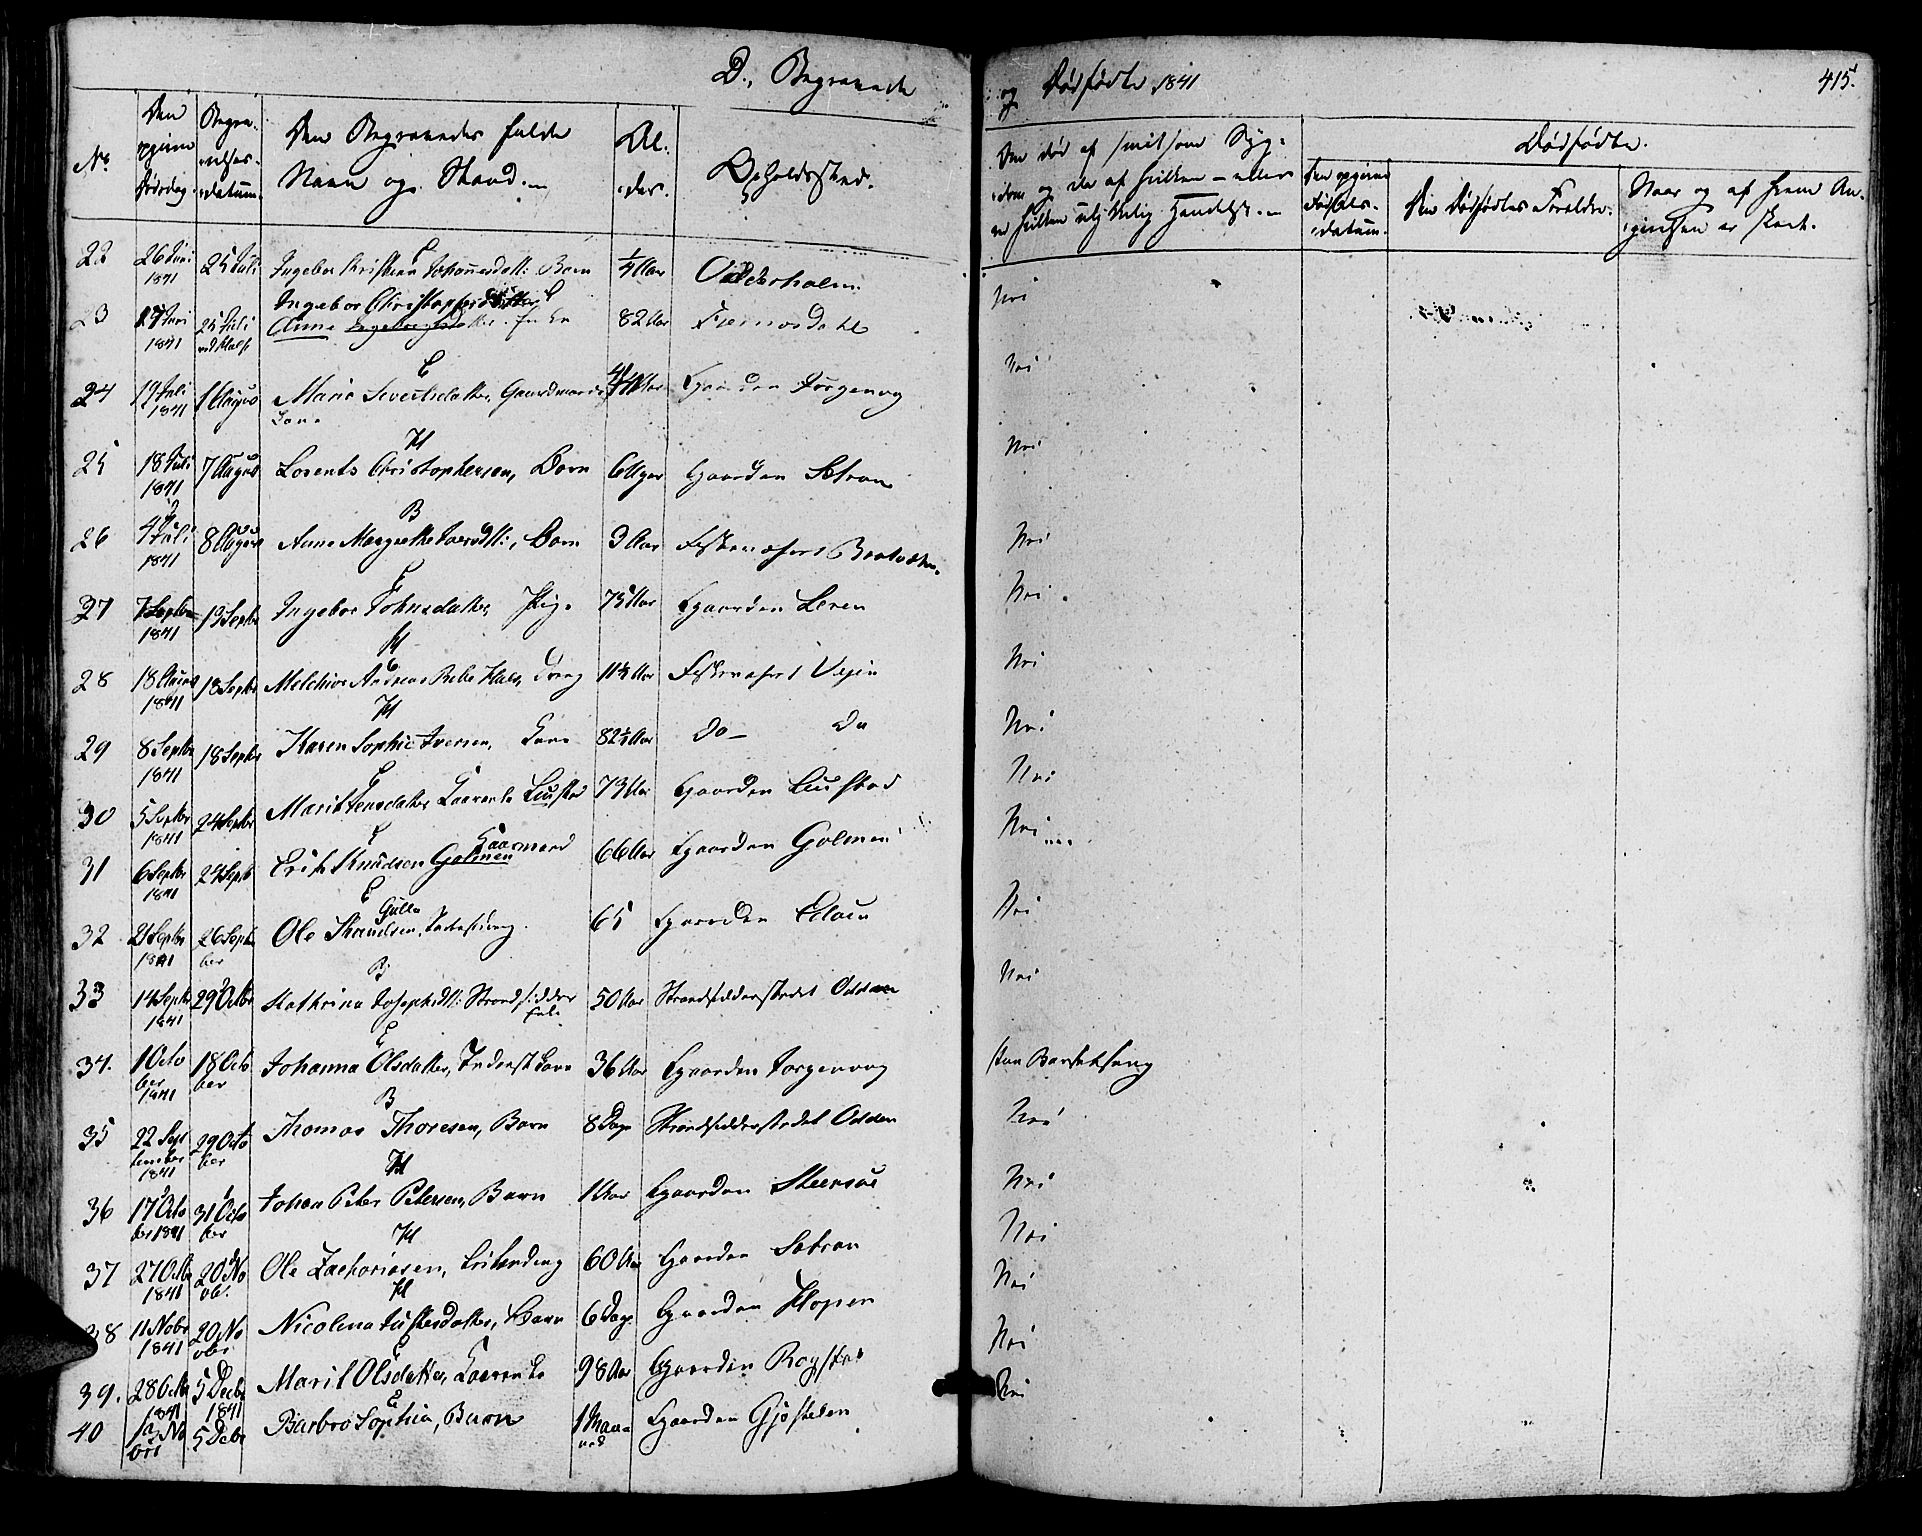 D., Begravede og Dødfødte 1841
415.
No
Den opgivne Dødsdag.
Begravelses-datum.
Den Begravedes fulde Navn og Stand.
Alder.
Opholdssted.
Døe død af smitsom Sygdom og da af hvilken - eller ved hvilken ulykkelig Hændelse.
Dødfødte.
Den opgivne Fødselsdatum.
Den Dødfødtes Forældre.
Naar og af hvem Angivelsen er skeet.
22 26 Juni 1841 25 Juli E Ingebor Kristine Johannesdtt: Barn ¼ Aar Olderholm Nei
23 27 Juni 1841 25 Juli Ingebor Christophersdatter E
Anne Ingeborgsdatter. Enke 82 Aar Fjernesdahl Nei
24 19 Juli 1841 1 August E Marie Sivertsdatter, Gaardmands Kone Gaarden Jørgenvog Nei
25 18 Juli 1841 7 August H Lorents Christophersen, Barn 6 Uger Gaarden Sætran Nei
26 4 Juli 1841 8 August B Anne Margrethe Iversdtt:, Barn 3 Aar Fiskeværet Brattvær. Nei
27 7 Septbr 1841 13 Septbr E Ingebor Johnsdatter Pige 75 Aar Gaarden Leren Nei
28 18 August 1841 18 Septbr H Melchior Andreas Bebe Hals, Dreng 11½ Aar Fiskeværet Vejen Nei
29 8 Septbr 1841 18 Septbr H Karen Sophie Iversen, Kone 82½ Aar Do - Do Nei
30 5 Septbr 1841 24 Septbr E Marit Jensdatter Kaarenke Liustad 73 Aar Gaarden Liustad Nei
31 6 Septbr 1841 24 Septb E Erik Knudsen Golmen Kaarmand 66 Aar Gaarden Golmen Nei
32 21 Septbr 1841 26 Septbr E Ole Knudsen Gulla 65 Gaarden Edøen Nei
33 14 Septbr 1841 29 Octbr B Kathrina Josephsdtt: Strandsidder Enke 50 Aar Strandsidderstedet Odden Nei
34. 1 October 1841 18 October E Johanna Olsdatter, Inderst Kone 36 Aar Gaarden Jørgenvog i sin Barselseng
35 22 September 1841 29 October B Thomas Thoresen, Barn 8 Dage Strandsidderstedet Odden Nei
36 17 October 1841 31 October H Johan Peter Petersen, Barn 1 Aar Gaarden Steensøe Nei
37 27 Octbr 1841 20 Novbr. H Ole Zachariasen, 60 Aar Gaarden Sætran Nei
38 11 Novbr 1841 20 Novbr H Nicolina Justesdatter, Barn 6 Dage Gaarden Hopen Nei
39. 28 Octbr 1841 5 Decbr 1841 E Marit Olsdatter, Kaarenke 98 Aar Gaarden Røgster Nei
40 Novbr 5 Decbr E Barbro Sophia, Barn 1 Maaned Gaarden Gjøstølen Nei